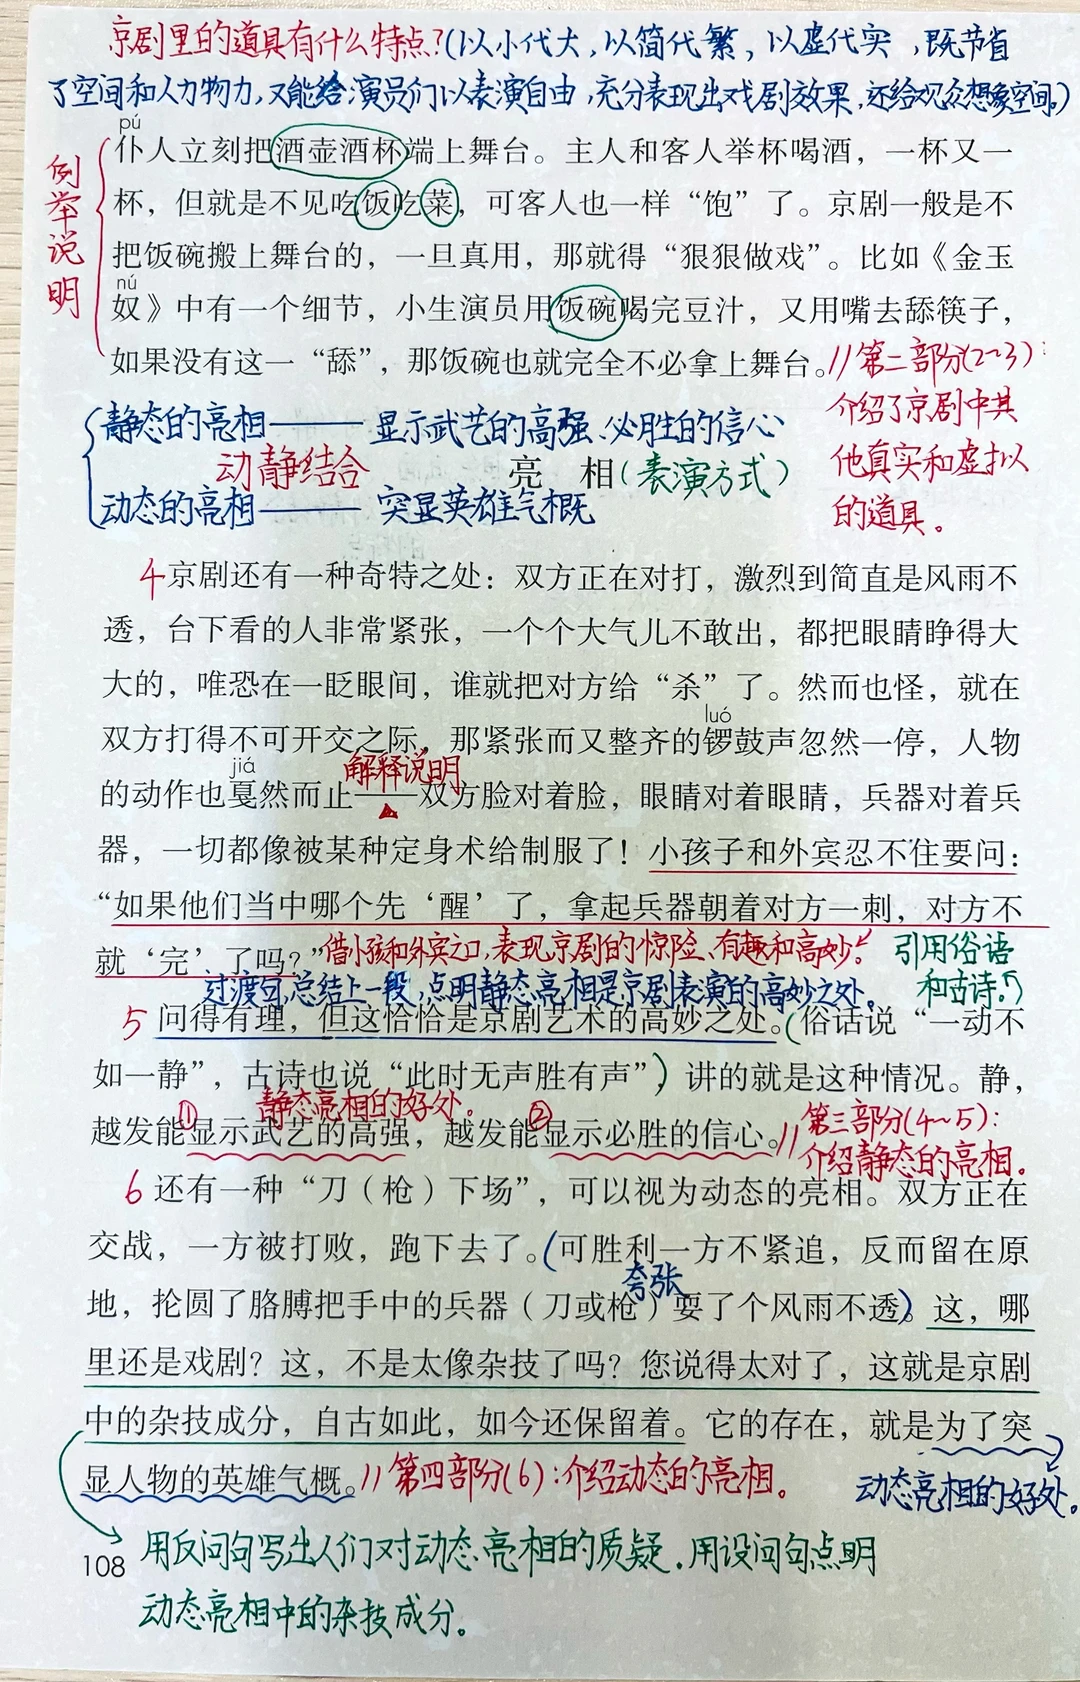 京剧里的道具有什么特点?(以小代大,以简代繁,以虚代实,既节省
了空间和人力物力,又能给演员们以表演自由,充分表现出戏剧效果,还给观众想象空间。)
pú
仆人立刻把酒壶酒杯端上舞台。主人和客人举杯喝酒，一杯又一
例举说明
杯，但就是不见吃饭吃菜，可客人也一样“饱”了。京剧一般是不
把饭碗搬上舞台的，一旦真用，那就得“狠狠做戏”。比如《金玉
nú
奴》中有一个细节，小生演员用饭碗喝完豆汁，又用嘴去舔筷子，
如果没有这一“舔”，那饭碗也就完全不必拿上舞台。
//第二部分(2~3):
介绍了京剧中其
他真实和虚拟以
的道具。
静态的亮相——显示武艺的高强、必胜的信心
动静结合
亮 相(表演方式)
动态的亮相——突显英雄气概
4京剧还有一种奇特之处：双方正在对打，激烈到简直是风雨不
透，台下看的人非常紧张，一个个大气儿不敢出，都把眼睛睁得大
大的，唯恐在一眨眼间，谁就把对方给“杀”了。然而也怪，就在
luó
双方打得不可开交之际，那紧张而又整齐的锣鼓声忽然一停，人物
jiá
解释说明
的动作也戛然而止——双方脸对着脸，眼睛对着眼睛，兵器对着兵
器，一切都像被某种定身术给制服了！小孩子和外宾忍不住要问：
“如果他们当中哪个先‘醒’了，拿起兵器朝着对方一刺，对方不
就‘完’了吗？”
借小孩和外宾之口,表现京剧的惊险、有趣和高妙。
引用俗语
和古诗。
过渡句,总结上一段,点明静态亮相是京剧表演的高妙之处。
5 问得有理，但这恰恰是京剧艺术的高妙之处。(俗话说“一动不
如一静”，古诗也说“此时无声胜有声”)，讲的就是这种情况。静，
静态亮相的好处。
越发能①显示武艺的高强，越发能②显示必胜的信心。
//第三部分(4~5):
介绍静态的亮相。
6 还有一种“刀（枪）下场”，可以视为动态的亮相。双方正在
交战，一方被打败，跑下去了。(可胜利一方不紧追，反而留在原
夸张
地，抡圆了胳膊把手中的兵器（刀或枪）耍了个风雨不透)。这，哪
里还是戏剧？这，不是太像杂技了吗？您说得太对了，这就是京剧
中的杂技成分，自古如此，如今还保留着。它的存在，就是为了突
显人物的英雄气概。//第四部分(6):介绍动态的亮相。
动态亮相的好处。
108
用反问句写出人们对动态亮相的质疑.用设问句点明
动态亮相中的杂技成分。